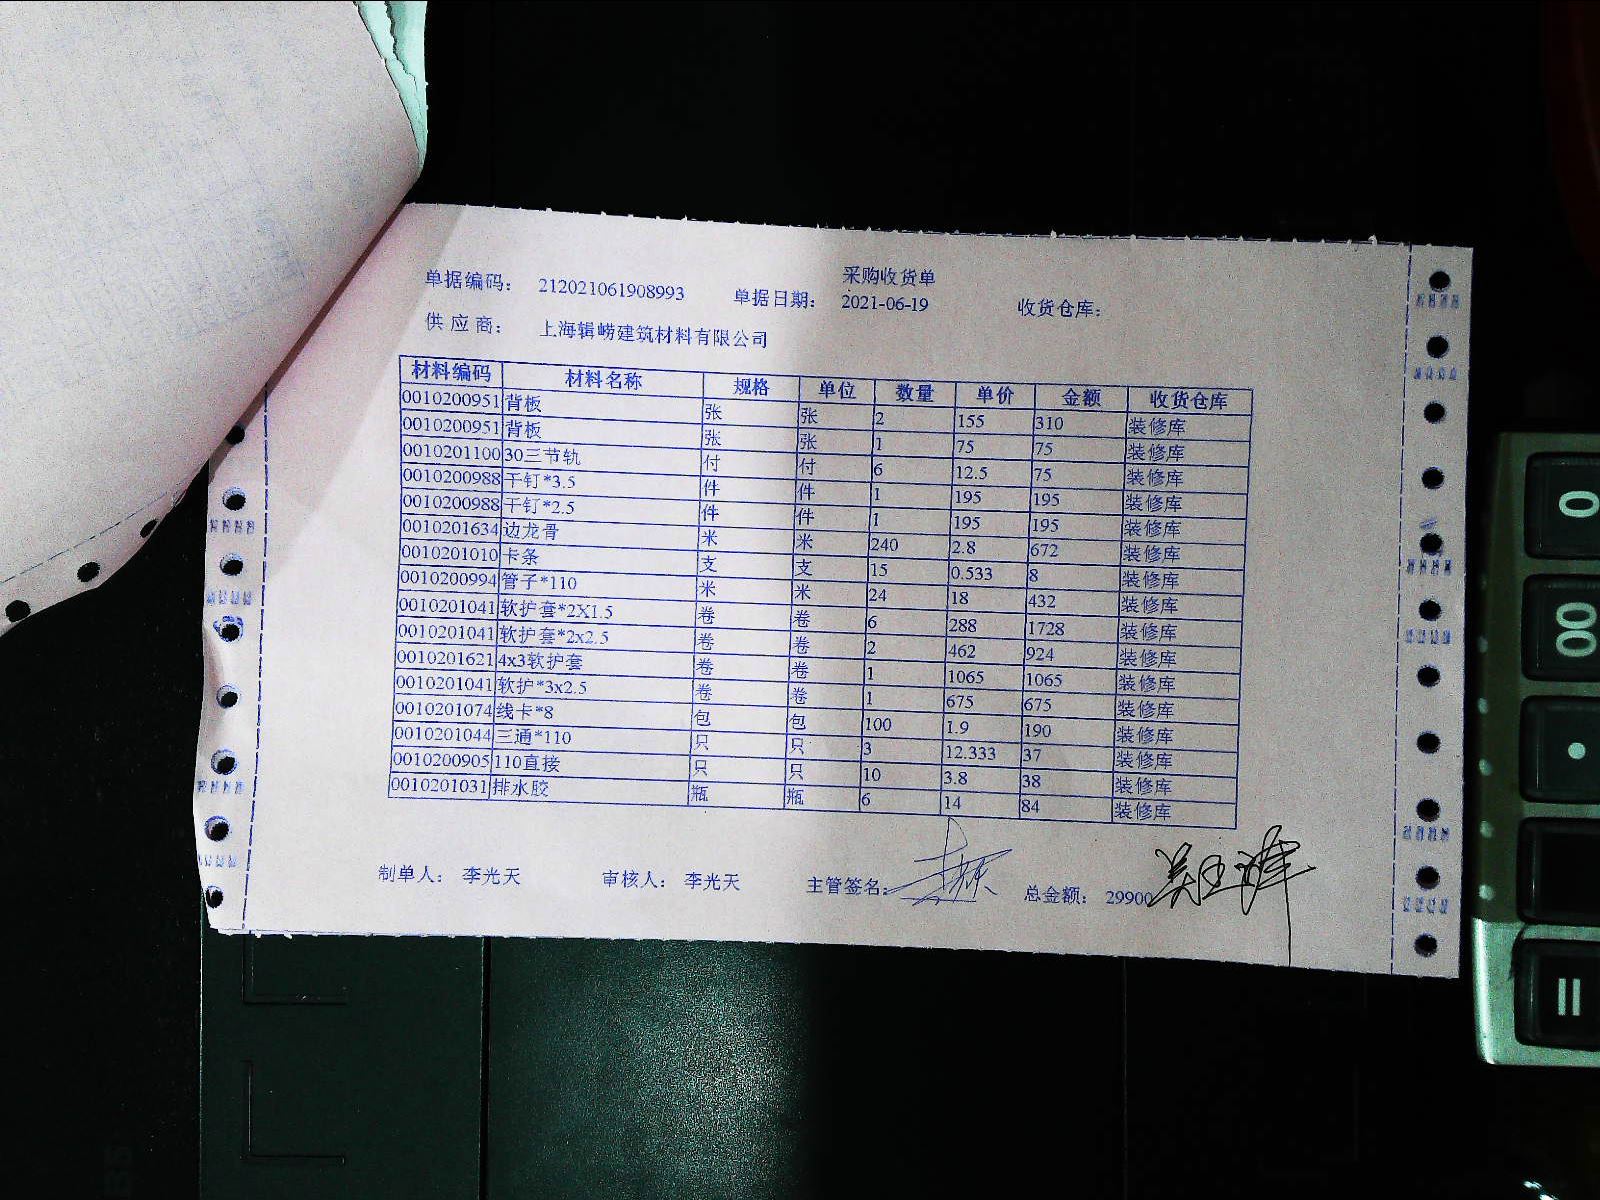 采购收货单
单据编码： 212021061908993 单据日期： 2021-06-19 收货仓库：
供 应 商： 上海辑崂建筑材料有限公司
材料编码 材料名称 规格 单位 数量 单价 金额 收货仓库
0010200951 背板 张 张 2 155 310 装修库
0010200951 背板 张 张 1 75 75 装修库
0010201100 30三节轨 付 付 6 12.5 75 装修库
0010200988 干钉*3.5 件 件 1 195 195 装修库
0010200988 干钉*2.5 件 件 1 195 195 装修库
0010201634 边龙骨 米 米 240 2.8 672 装修库
0010201010 卡条 支 支 15 0.533 8 装修库
0010200994 管子*110 米 米 24 18 432 装修库
0010201041 软护套*2X1.5 卷 卷 6 288 1728 装修库
0010201041 软护套*2x2.5 卷 卷 2 462 924 装修库
0010201621 4x3软护套 卷 卷 1 1065 1065 装修库
0010201041 软护*3x2.5 卷 卷 1 675 675 装修库
0010201074 线卡*8 包 包 100 1.9 190 装修库
0010201044 三通*110 只 只 3 12.333 37 装修库
0010200905 110直接 只 只 10 3.8 38 装修库
0010201031 排水胶 瓶 瓶 6 14 84 装修库
制单人： 李光天 审核人： 李光天 主管签名： 总金额： 29900
0
00
=